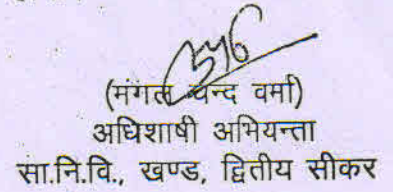 (मंगल चन्द वर्मा)
अधिशाषी अभियन्ता
सा.नि.वि., खण्ड, द्वितीय सीकर